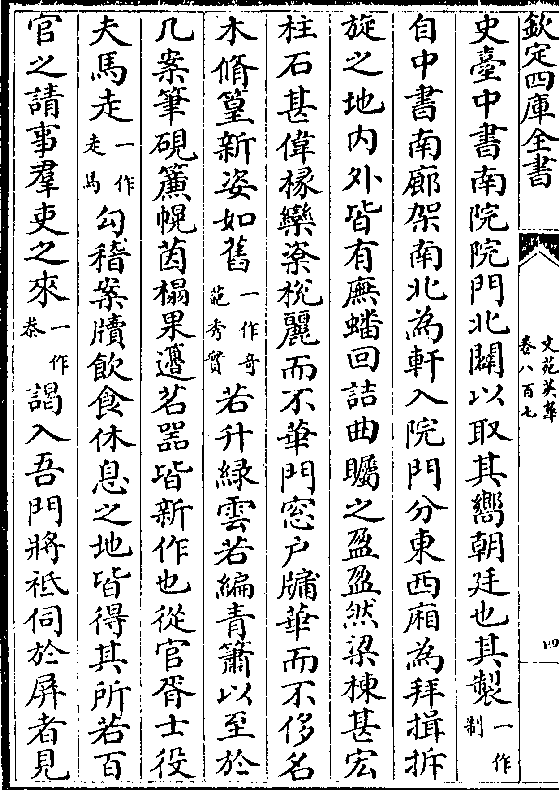 欽定四庫全書
文苑英華
卷八百七
四
史臺中書南院院門北闢以取其嚮朝廷也其製一作制
自中書南廊架南北為軒入院門分東西廂為拜揖折
旋之地内外皆有廡蟠回詰曲矚之盈盈然梁棟甚宏
柱石甚偉椽欒粢梲麗而不華門窓户牖華而不侈名
木脩篁新姿如舊一作奇葩秀質若升緑雲若編青簫以至於
几案筆硯簾幌茵榻果邊茗器皆新作也從官胥士役
夫馬走一作走馬勾稽案牘飲食休息之地皆得其所若百
官之請事羣吏之來一作恭謁入吾門將祗伺於屏者見